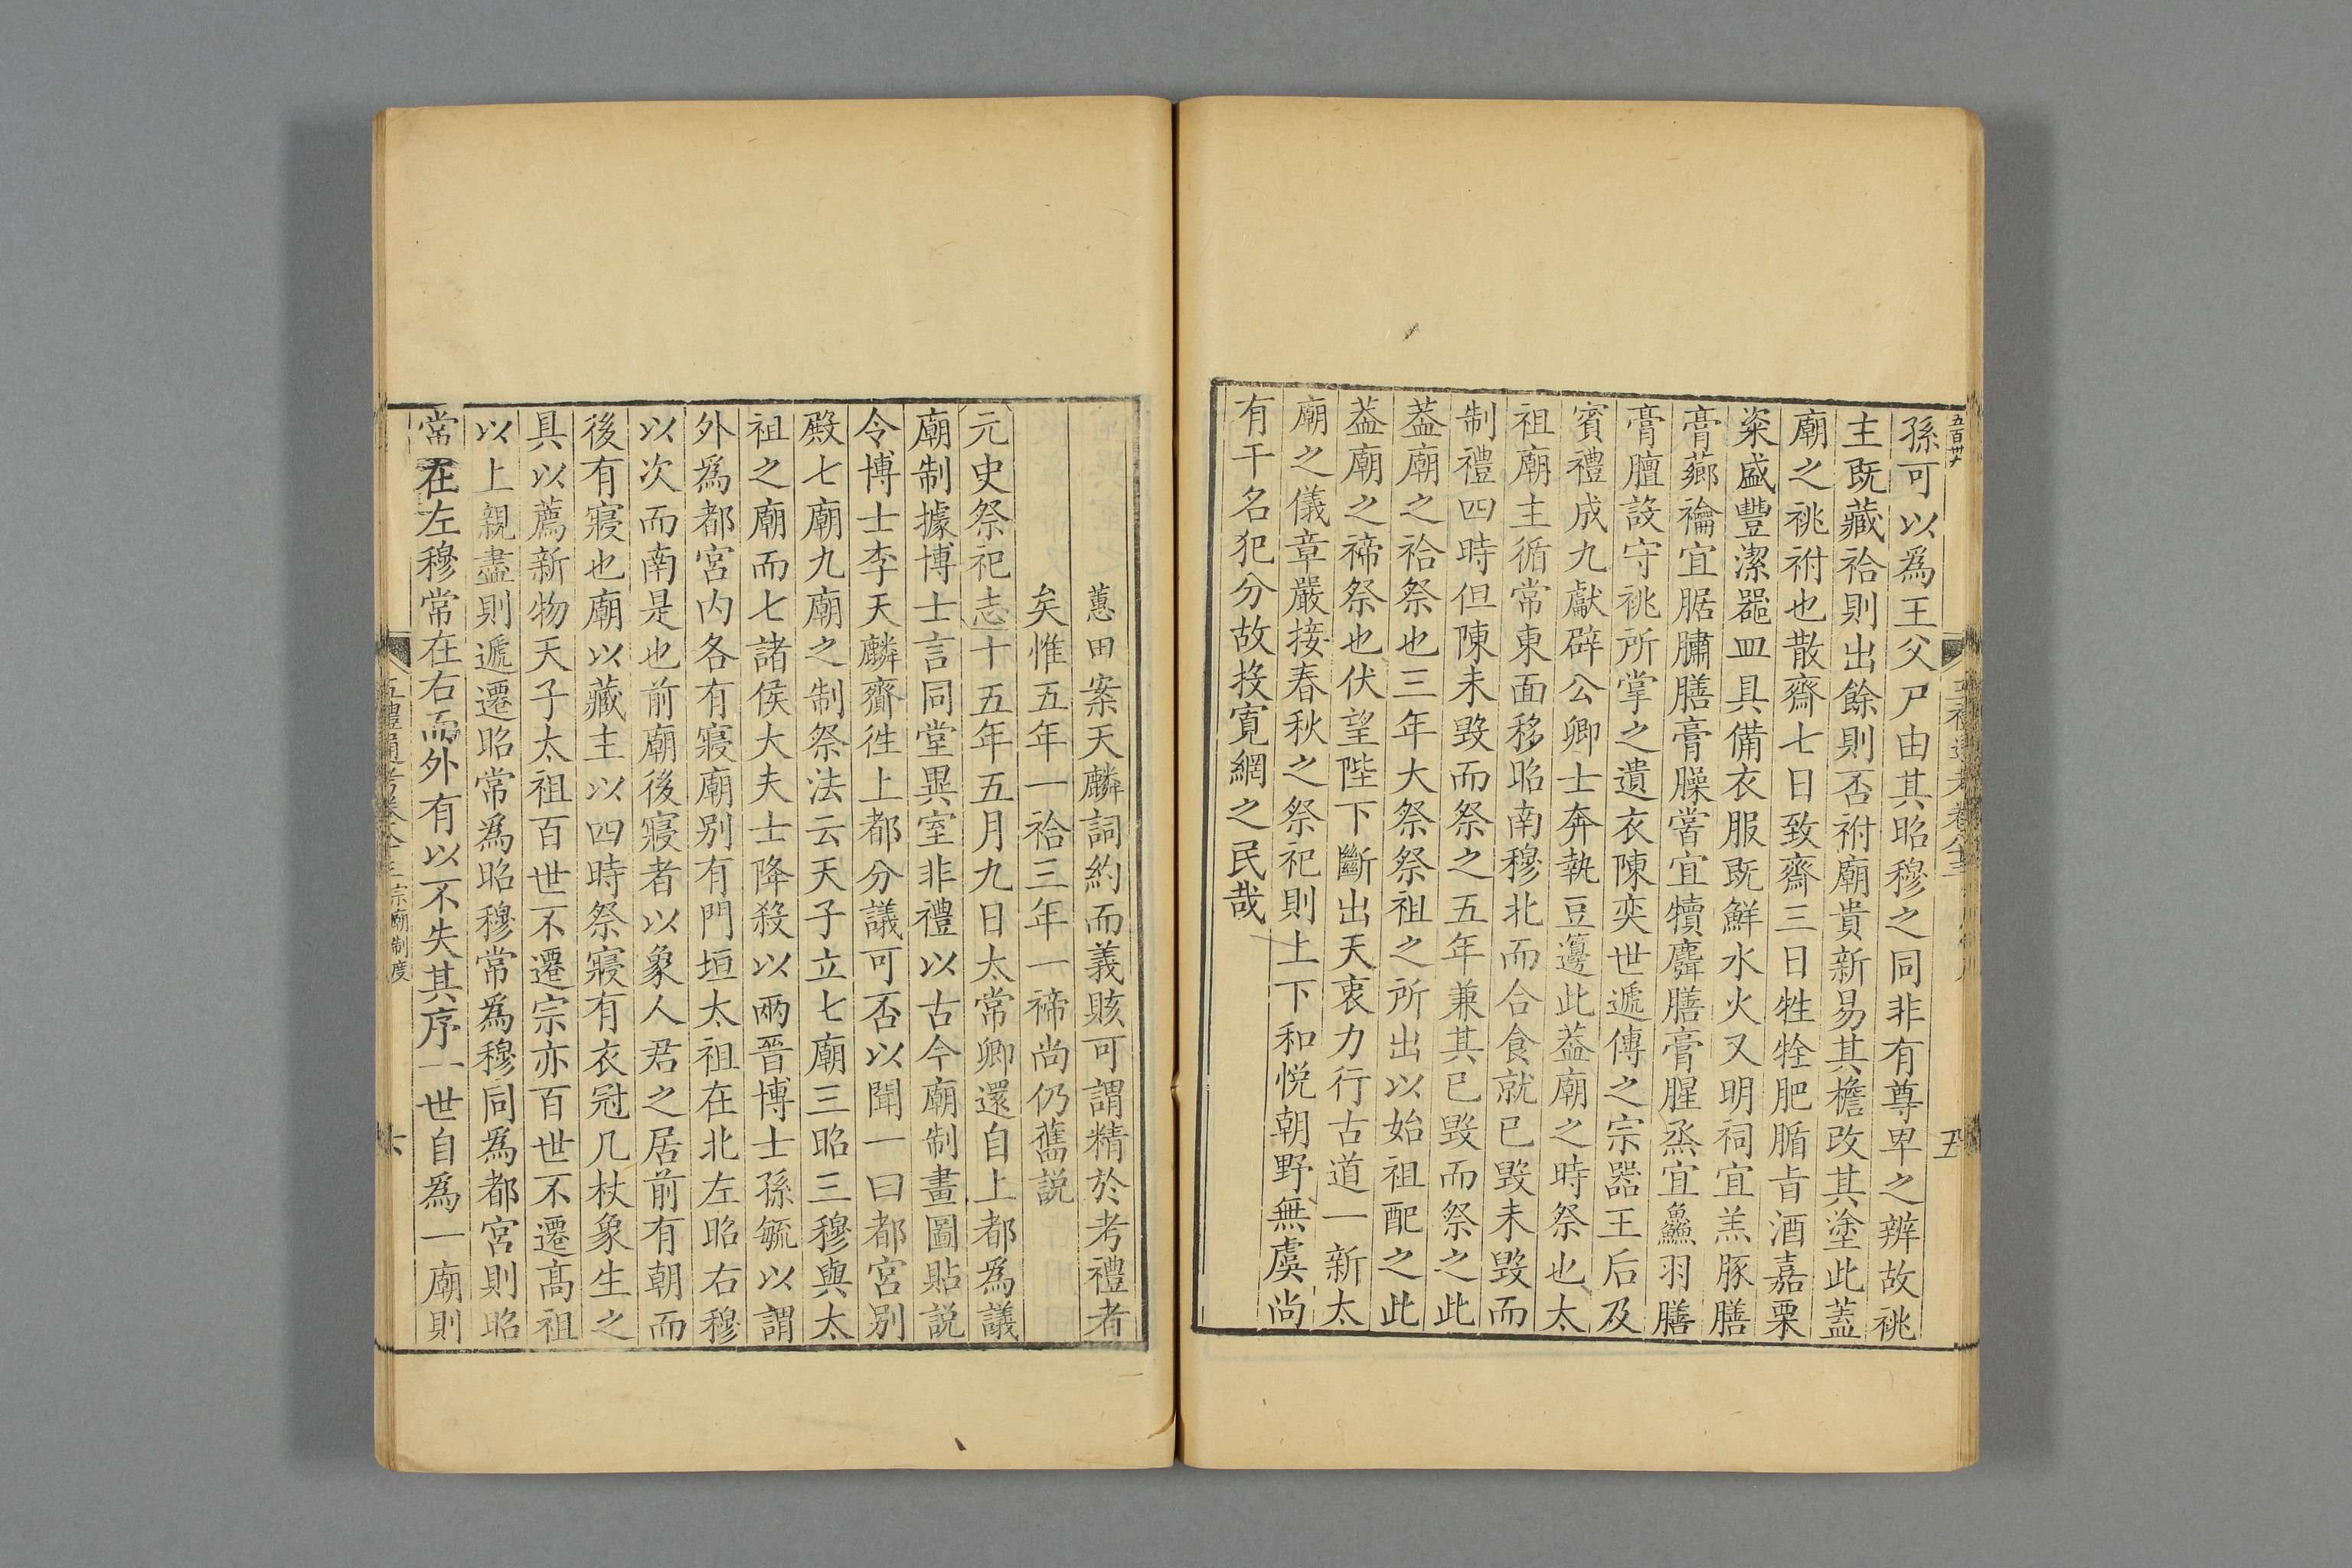 五百卅
孫可以為王父尸由其昭穆之同非有尊卑之辨故祧
主既藏祫則出餘則否祔廟貴新易其檐改其塗此蓋
廟之祧祔也散齋七日致齋三日牲牷肥腯旨酒嘉栗
粢盛豐潔器皿具備衣服既鮮水火又明祠宜羔豚膳
膏薌禴宜腒鱐膳膏臊嘗宜犢麛膳膏腥烝宜鱻羽膳
膏膻設守祧所掌之遺衣陳奕世遞傳之宗器王后及
賓禮成九獻辟公卿士奔執豆籩此葢廟之時祭也太
祖廟主循常東面移昭南穆北而合食就已毀未毀而
制禮四時但陳未毀而祭之五年兼其已毀而祭之此
葢廟之祫祭也三年大祭祭祖之所出以始祖配之此
葢廟之禘祭也伏望陛下斷出天衷力行古道一新太
廟之儀章嚴接春秋之祭祀則上下和悅朝野無虞尚
有干名犯分故投寬網之民哉
五
蕙田案天麟詞約而義賅可謂精於考禮者
矣惟五年一祫三年一禘尚仍舊説
元史祭祀志十五年五月九日太常卿還自上都為議
廟制據博士言同堂異室非禮以古今廟制畫圖貼説
令博士李天麟齎徃上都分議可否以聞一曰都宮別
殿七廟九廟之制祭法云天子立七廟三昭三穆與太
祖之廟而七諸侯大夫士降殺以兩晉博士孫毓以謂
外為都宮内各有寢廟别有門垣太祖在北左昭右穆
以次而南是也前廟後寢者以象人君之居前有朝而
後有寢也廟以藏主以四時祭寢有衣冠几杖象生之
具以薦新物天子太祖百世不遷宗亦百世不遷高祖
以上親盡則遞遷昭常為昭穆常為穆同為都宮則昭
常在左穆常在右而外有以不失其序一世自為一廟則
五禮通考卷 宗廟制度
六